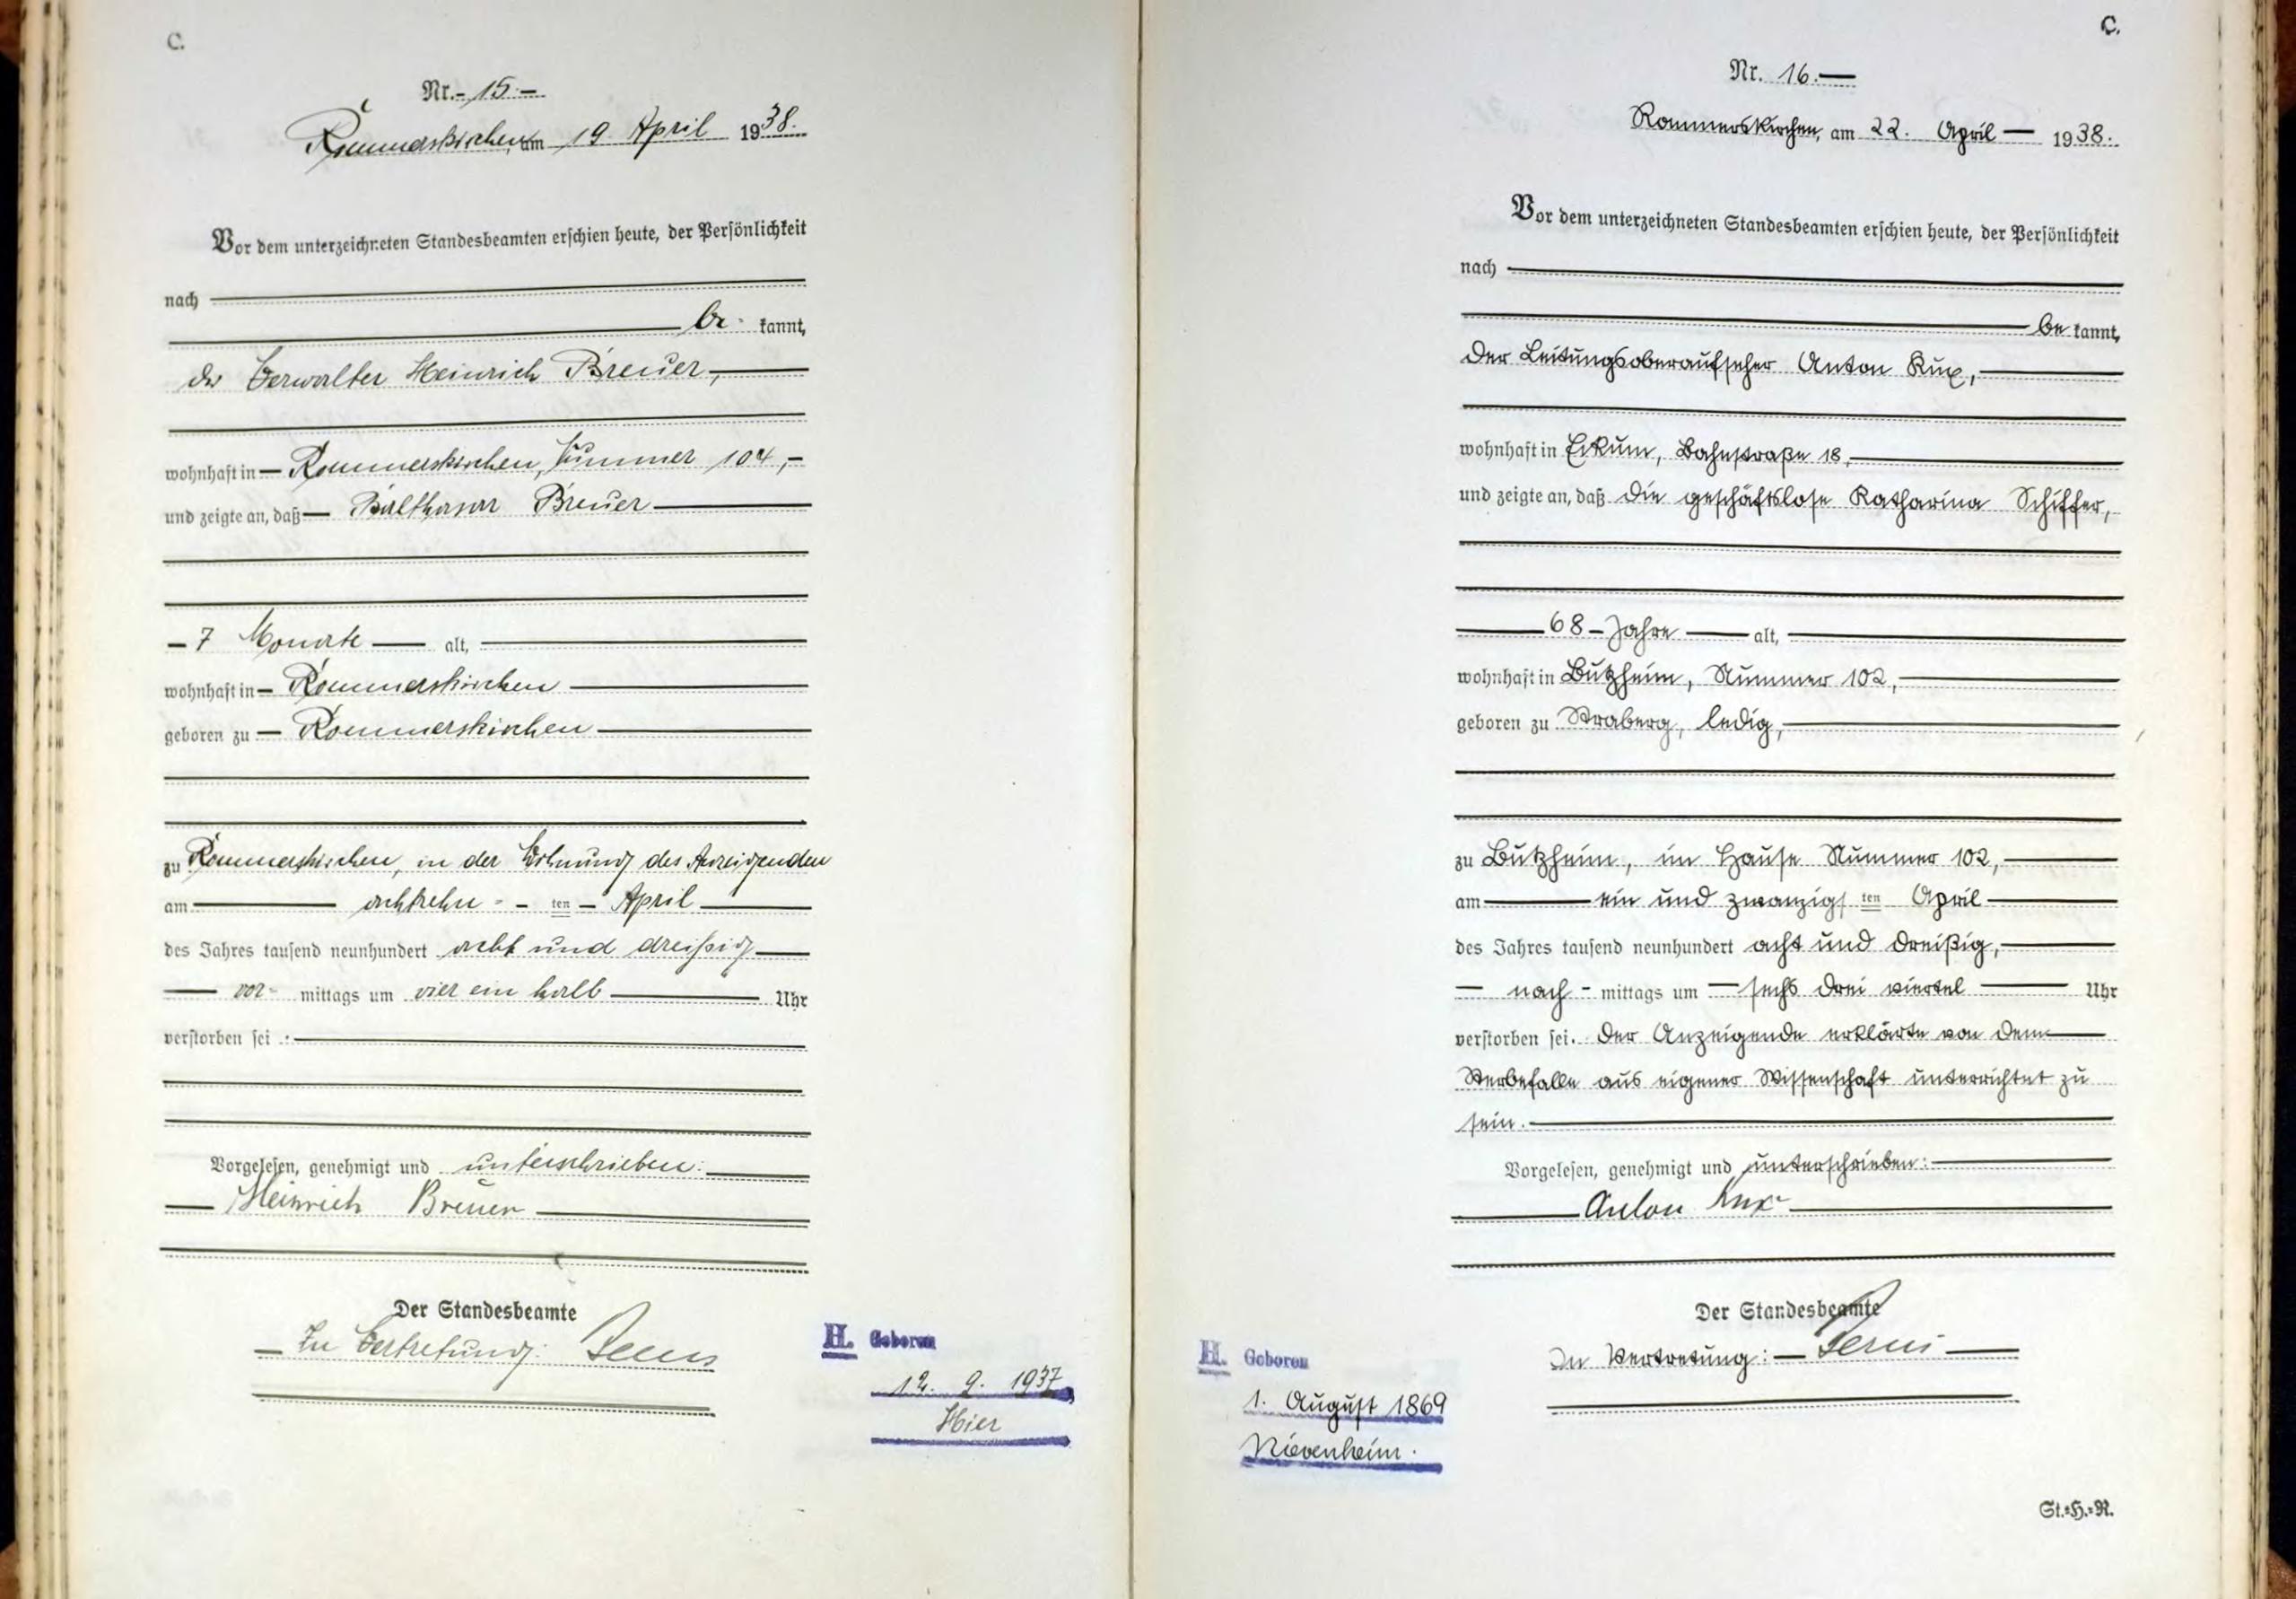 C.
Nr. 15.
Rommerskirchen, am 19. April 1938.
Vor dem unterzeichneten Standesbeamten erschien heute, der Persönlichkeit
nach
be- kannt,
der Verwalter Heinrich Breuer,
wohnhaft in Rommerskirchen, Nummer 104,
und zeigte an, daß Balthasar Breuer
7 Monate alt,
wohnhaft in Rommerskirchen
geboren zu Rommerskirchen
zu Rommerskirchen, in der Wohnung des Anzeigenden
am achtzehn - ten April
des Jahres tausend neunhundert acht und dreißig
vor- mittags um vier ein halb Uhr
verstorben sei.
Vorgelesen, genehmigt und unterschrieben:
Heinrich Breuer
Der Standesbeamte
In Vertretung:
H. Geboren
12. 9. 1937
Hier
C.
Nr. 16.
Rommerskirchen, am 22. April 1938.
Vor dem unterzeichneten Standesbeamten erschien heute, der Persönlichkeit
nach
be kannt,
der Leitungsoberaufseher Anton Kux,
wohnhaft in Eckum, Bahnstraße 18,
und zeigte an, daß die geschäftslose Katharina Schiffer,
68 Jahre alt,
wohnhaft in Butzheim, Nummer 102,
geboren zu Straberg, ledig,
zu Butzheim, im Hause Nummer 102,
am ein und zwanzigs ten April
des Jahres tausend neunhundert acht und dreißig,
nach - mittags um sechs drei viertel Uhr
verstorben sei. Der Anzeigende erklärte von dem
Sterbefalle aus eigener Wissenschaft unterrichtet zu
sein.
Vorgelesen, genehmigt und unterschrieben:
Anton Kux
Der Standesbeamte
In Vertretung:
H. Geboren
1. August 1869
Nievenheim.
St.=H.=R.